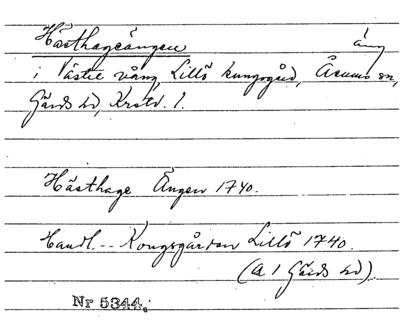 Hästhageängen äng
i Västre vång, Lillö kungsgård, Åsums sn,
Gärds hd, Krstd. l.
Hästhage Ängen 1740.
Handl. -- Kongsgården Lillö 1740.
(A 1 Gärds hd)
Nr 5344.